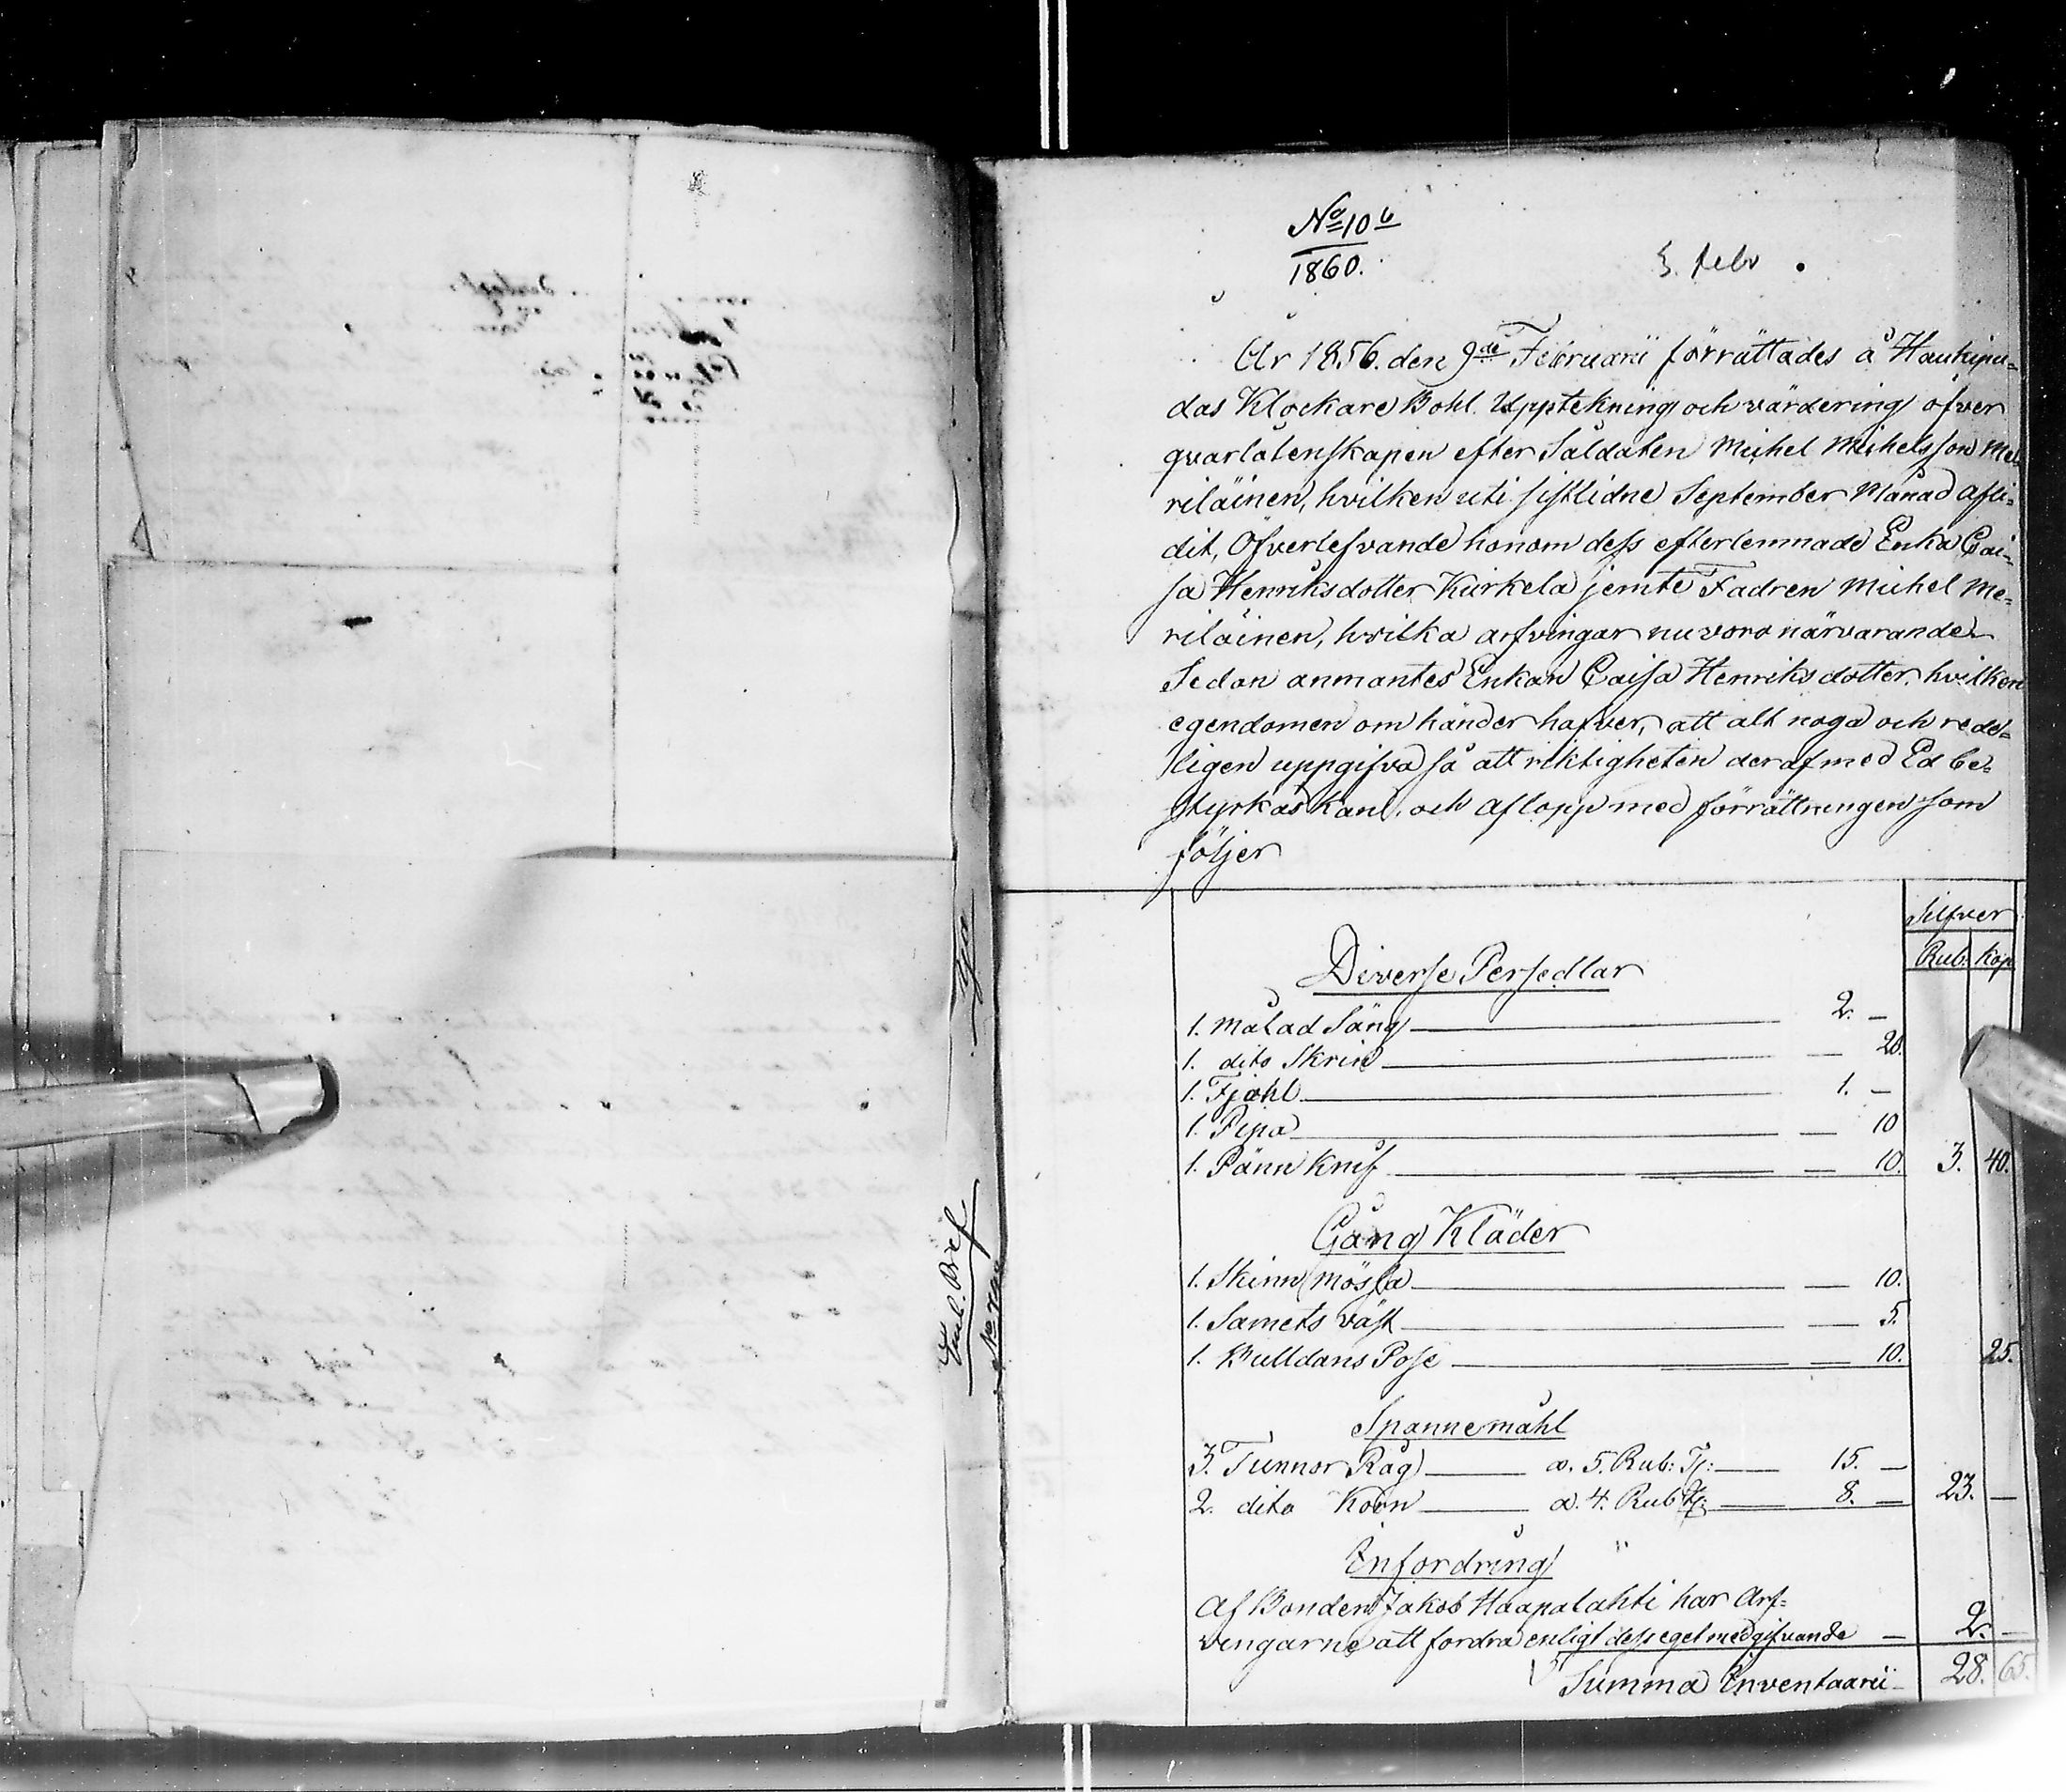 No 10 b
1860.
3. febr
År 1856. den 9de Februarii förrättades å Haukipu=
das Klockare Bohl. Upptekning och värdering öfver
qvarlåtenskapen efter Saldaten Michel Michelsson Me=
riläinen, hvilken uti sistlidne September Månad afli=
dit, Öfverlefvande honom dess efterlemnade Enka Cai=
sa Henriksdotter Kurkela jemte Fadren Michel Me=
riläinen, hvilka arfvingar nu voro närvarande.
Sedan anmantes Enkan Caisa Henriksdotter, hvilken
egendomen om händer hafver, att alt noga och rede=
ligen uppgifva så att riktigheten deraf med Ed be=
styrkas kan, och aflopp med förrättningen som
följer
Silfver
Rub. Kop
Diverse Persedlar
1. målad Säng 2. —
1. dito Skrin — 20.
1. Fjöhl 1. —
1. Pipa — 10
1. Pänn Knif — 10. 3. 40.
Gång Kläder
1. Skinn mössa — 10.
1. Samets väst — 5.
1. Bulldans Pose — 10. 25.
Spannemåhl
3. Tunnor Råg a. 5. Rub: Tj: 15. —
2. dito Korn a. 4. Rub Tj: 8. — 23. —
Infordring
Af Bonden Jakob Haapalahti har Arf=
vingarne att fordra enligt dess eget medgifvande — 2. —
Summa Inventaarii 28. 65.